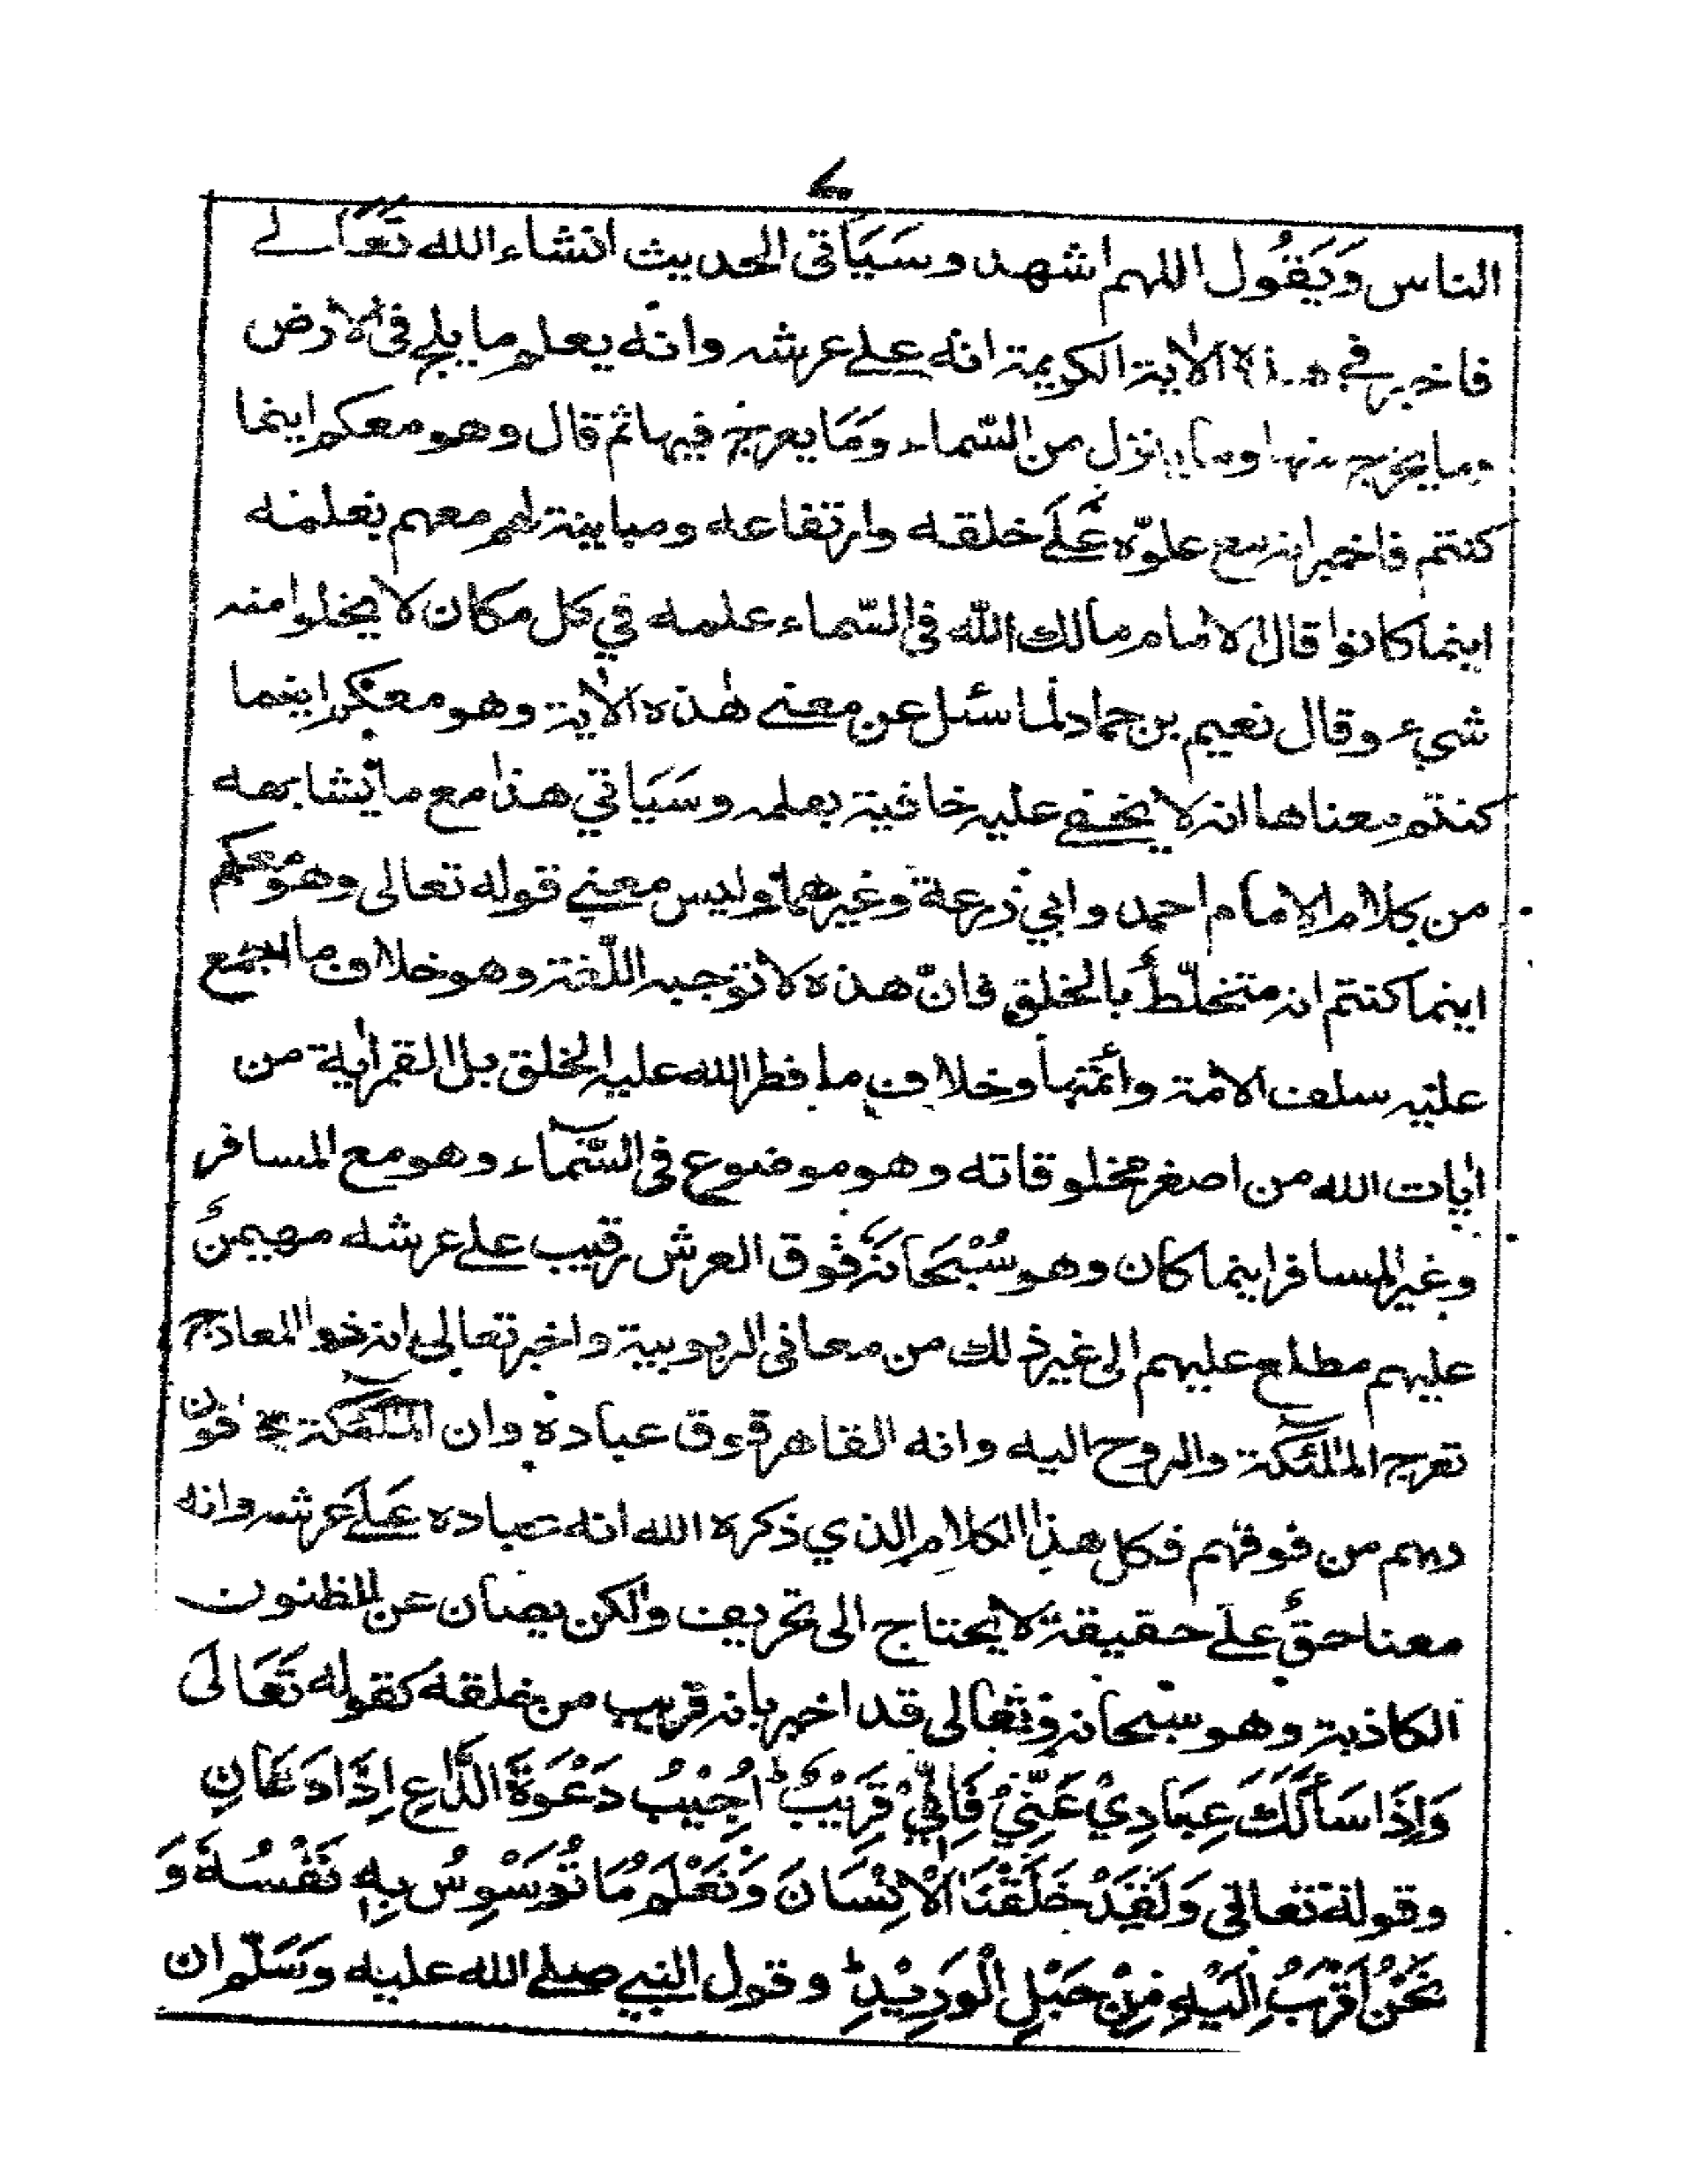 الناس وَيَقُول اللهم اشهد وسَيَأتى الحديث انشاء الله تَعَالے
فاخبر في هذه الاية الكريمة انه علے عرشه وانه يعلم ما يلج فى الارض
وما يخرج منها وما ينزل من السّماء وَمَا يعرج فيها ثم قال وهو معكم اينما
كنتم فاخبر انه مع علوّه عَلَے خلقه وارتفاعه ومباينة لهم معهم بعلمه
اينما كانوا قال الامام مالك الله فى السّماء علمه في كل مكان لا يخلوا منه
شيء وقال نعيم بن حماد لما سئل عن معنے هٰذه الاٰية وهو معكم اينما
كنتم معناها انه لا يخفے عليه خافية بعلمه وسَيَاتي هذا مع ما يشابهه
من كلام الامام احمد وابي زرعة وغيرهما وليس معنے قوله تعالى وهو معكم
اينما كنتم انه متخلّطٌ بالخلق فانّ هذه لا توجبه اللّغة وهو خلاف ما اجمع
عليه سلف الامّة وائمّتها وخلاف ما فطر الله عليه الخلق بل القمر اٰية من
اٰيات الله من اصغر مخلوقاته وهو موضوع فى السّماء وهو مع المسافر
وغير المسافر اينما كان وهو سُبْحَانَه فوق العرش رقيب علے عرشه مهيمنٌ
عليهم مطلع عليهم الى غير ذلك من معانى الربوبية واخبر تعالى انه ذو المعارج
تعرج الملٰئكة والروح اليه وانه القاهر فوق عباده وان الملٰئكة يخافون
ربهم من فوقهم فكل هذا الكلام الذي ذكره الله انه عباده عَلَے عَرشه وانه
معنا حقٌ علے حقيقة لا يحتاج الى تحريف ولكن يصان عن الظنون
الكاذبة وهو سبحانه وتعالى قد اخبر بانه قريب من خلقه كقوله تَعَالَى
وَاِذَا سَأَلَكَ عِبَادِيْ عَنِّيْ فَاِنِّيْ قَرِيْبٌ ط اُجِيْبُ دَعْوَةَ الدَّاعِ اِذَا دَعَانِ
وقوله تعالى وَلَقَدْ خَلَقْنَا الْاِنْسَانَ وَنَعْلَمُ مَا تُوَسْوِسُ بِهٖ نَفْسُهٗ وَ
نَحْنُ اَقْرَبُ اِلَيْهِ مِنْ حَبْلِ الْوَرِيْدِ ط وقول النبي صلے الله عليه وَسَلّم ان